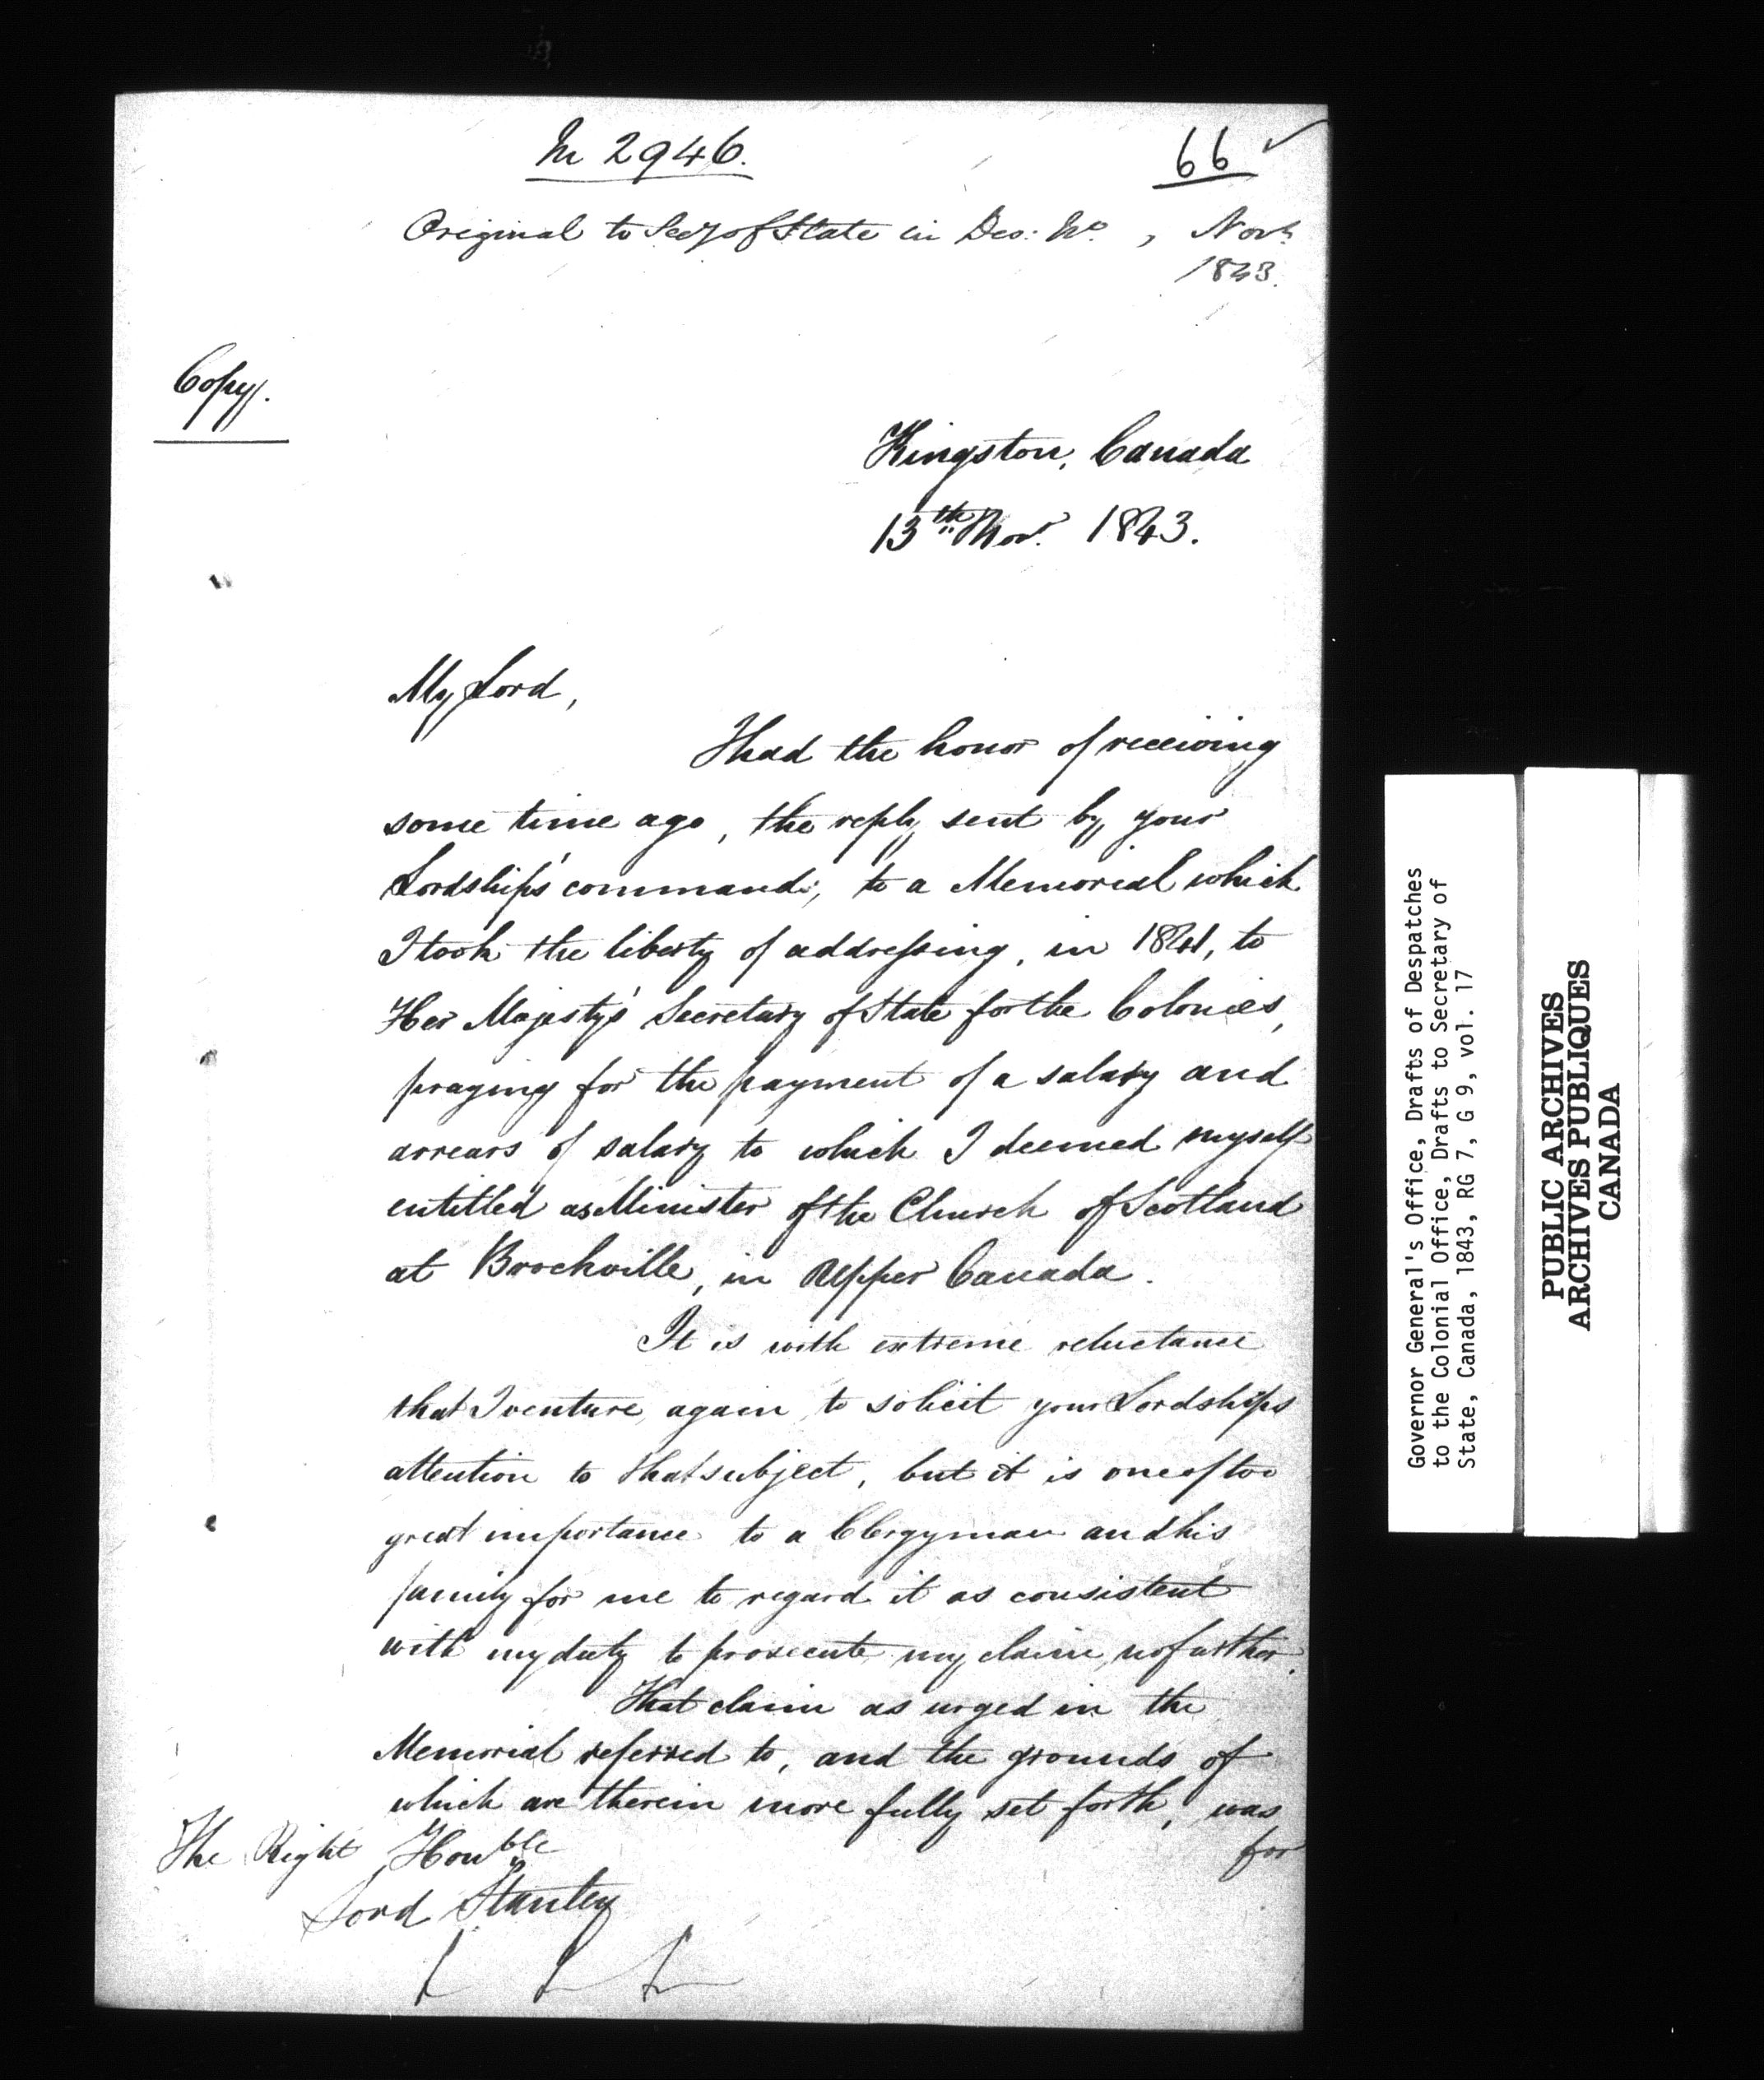 No 2946.
66
Original to Secy of State in Des: No , Novr
1843.
Copy.
Kingston, Canada
13th Nov. 1843.
My Lord,
I had the honor of receiving
some time ago, the reply sent by your
Lordship's command, to a Memorial which
I took the liberty of addressing, in 1841, to
Her Majesty's Secretary of State for the Colonies,
praying for the payment of a salary and
arrears of salary to which I deemed myself
entitled as Minister of the Church of Scotland
at Brockville, in Upper Canada.
It is with extreme reluctance
that I venture, again, to solicit your Lordships
attention to that subject, but it is one of too
great importance to a Clergyman and his
family for me to regard it as consistent
with my duty to prosecute my claim, no further.
That claim as urged in the
Memorial referred to, and the grounds of
which are therein more fully set forth, was
for
The Right Honble
Lord Stanley
Governor General's Office, Drafts of Despatches
to the Colonial Office, Drafts to Secretary of
State, Canada, 1843, RG 7, G 9, vol. 17
PUBLIC ARCHIVES
ARCHIVES PUBLIQUES
CANADA